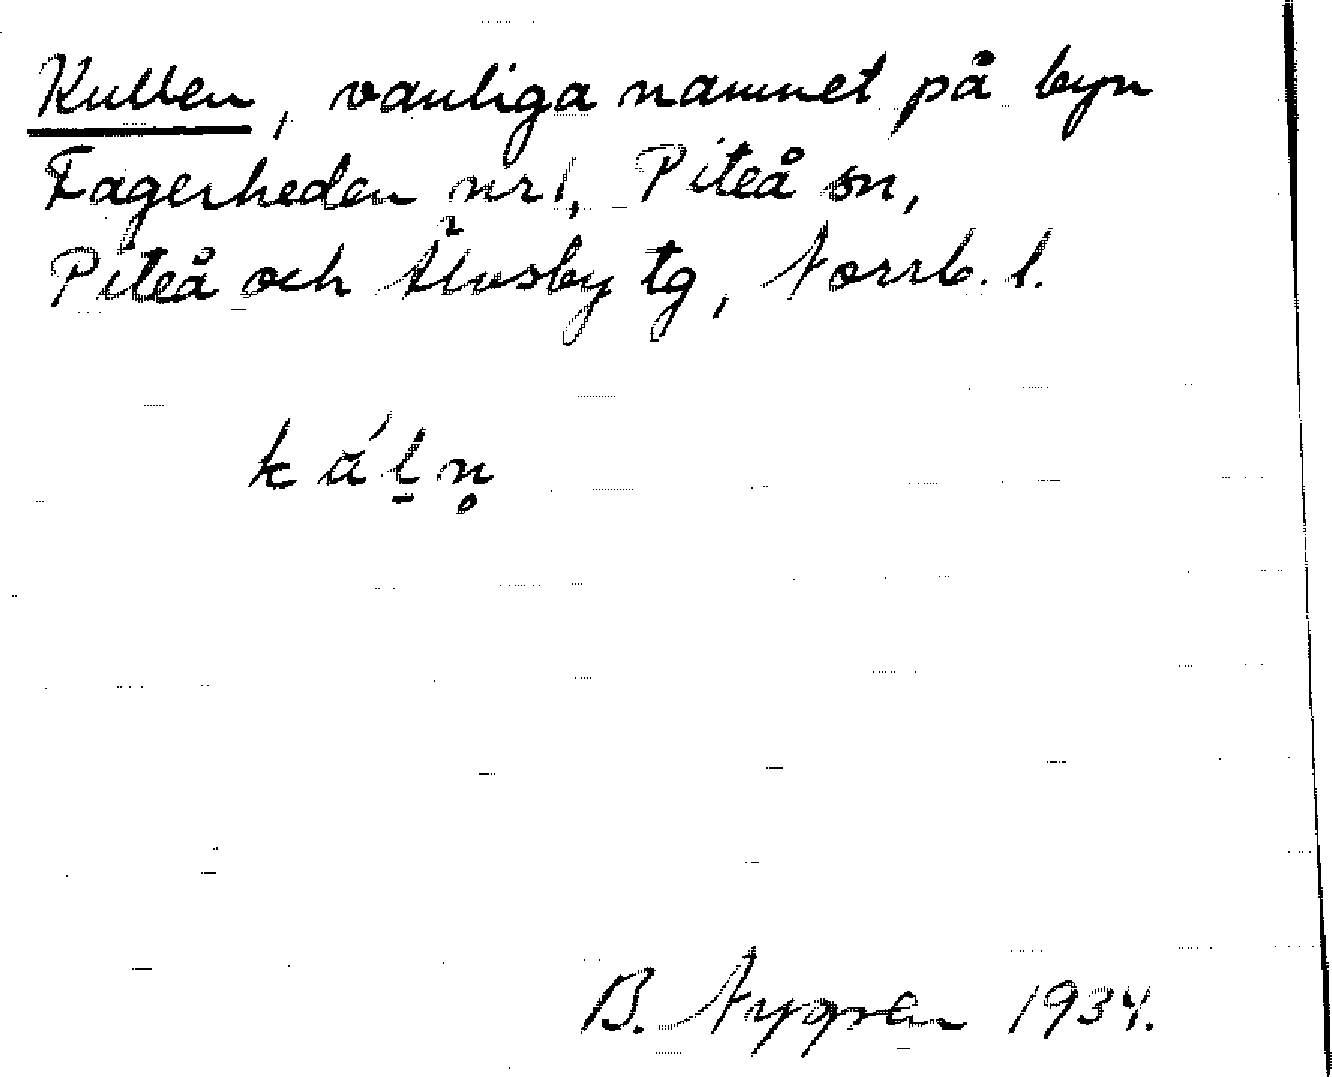 Kullen, vanliga namnet på byn
Fagerheden nr 1, Piteå sn,
Piteå och Älvsby tg, Norrb. l.
k á l̠ n̥
B. Nygren 1934.